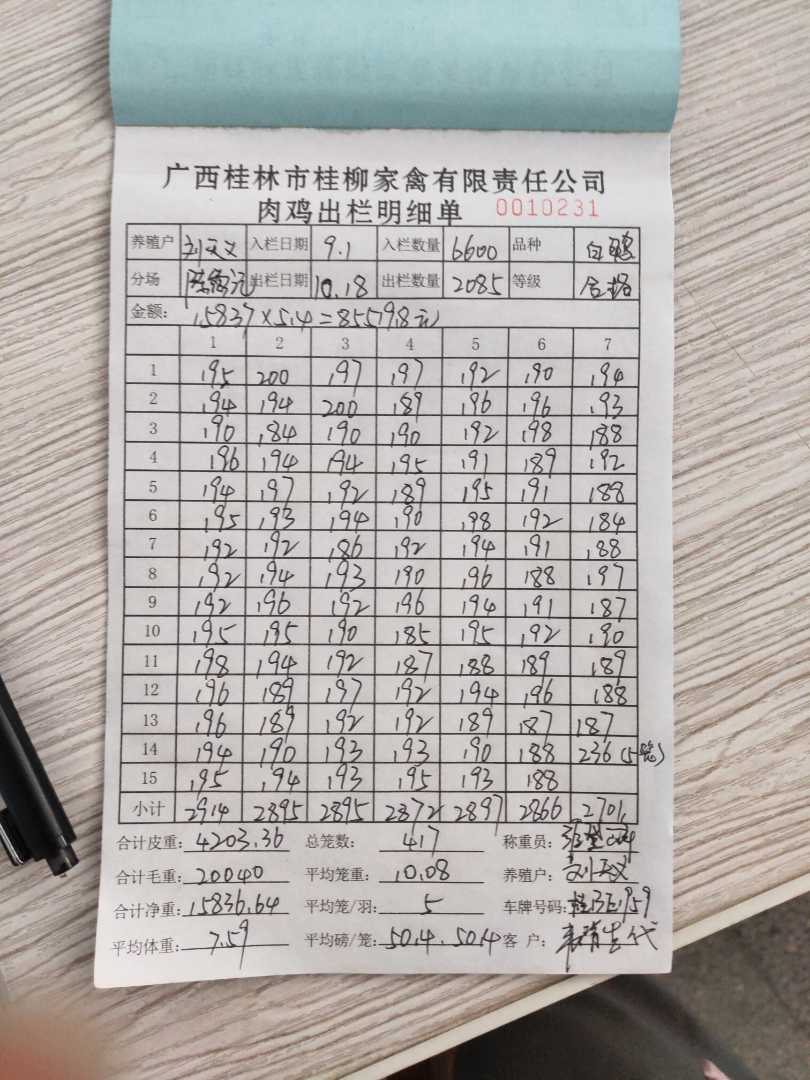 广西桂林市桂柳家禽有限责任公司
肉鸡出栏明细单 0010231
养殖户 入栏日期 9.1 入栏数量 6600 品种
分场 出栏日期 10.18 出栏数量 2085 等级 合格
金额: 15837×5.4=85519.8元
1 2 3 4 5 6 7
1 195 200 197 197 192 190 194
2 194 194 200 189 196 196 193
3 190 184 190 190 192 198 188
4 196 194 194 195 191 189 192
5 194 197 192 189 195 191 188
6 195 193 194 190 198 192 184
7 192 192 186 192 194 191 188
8 192 194 193 190 196 188 197
9 192 196 192 196 194 191 187
10 195 195 190 185 195 192 190
11 198 194 192 187 188 189 189
12 196 189 197 192 194 196 188
13 196 189 192 192 189 187 187
14 194 190 193 193 190 188 236 (5笼)
15 195 194 193 195 193 188
小计 2914 2895 2895 2872 2897 2866 2701
合计皮重: 4203.36 总笼数: 417 称重员:
合计毛重: 20040 平均笼重: 10.08 养殖户:
合计净重: 15836.64 平均笼/羽: 5 车牌号码:
平均体重: 7.59 平均磅/笼: 50.4.50.4 客 户: